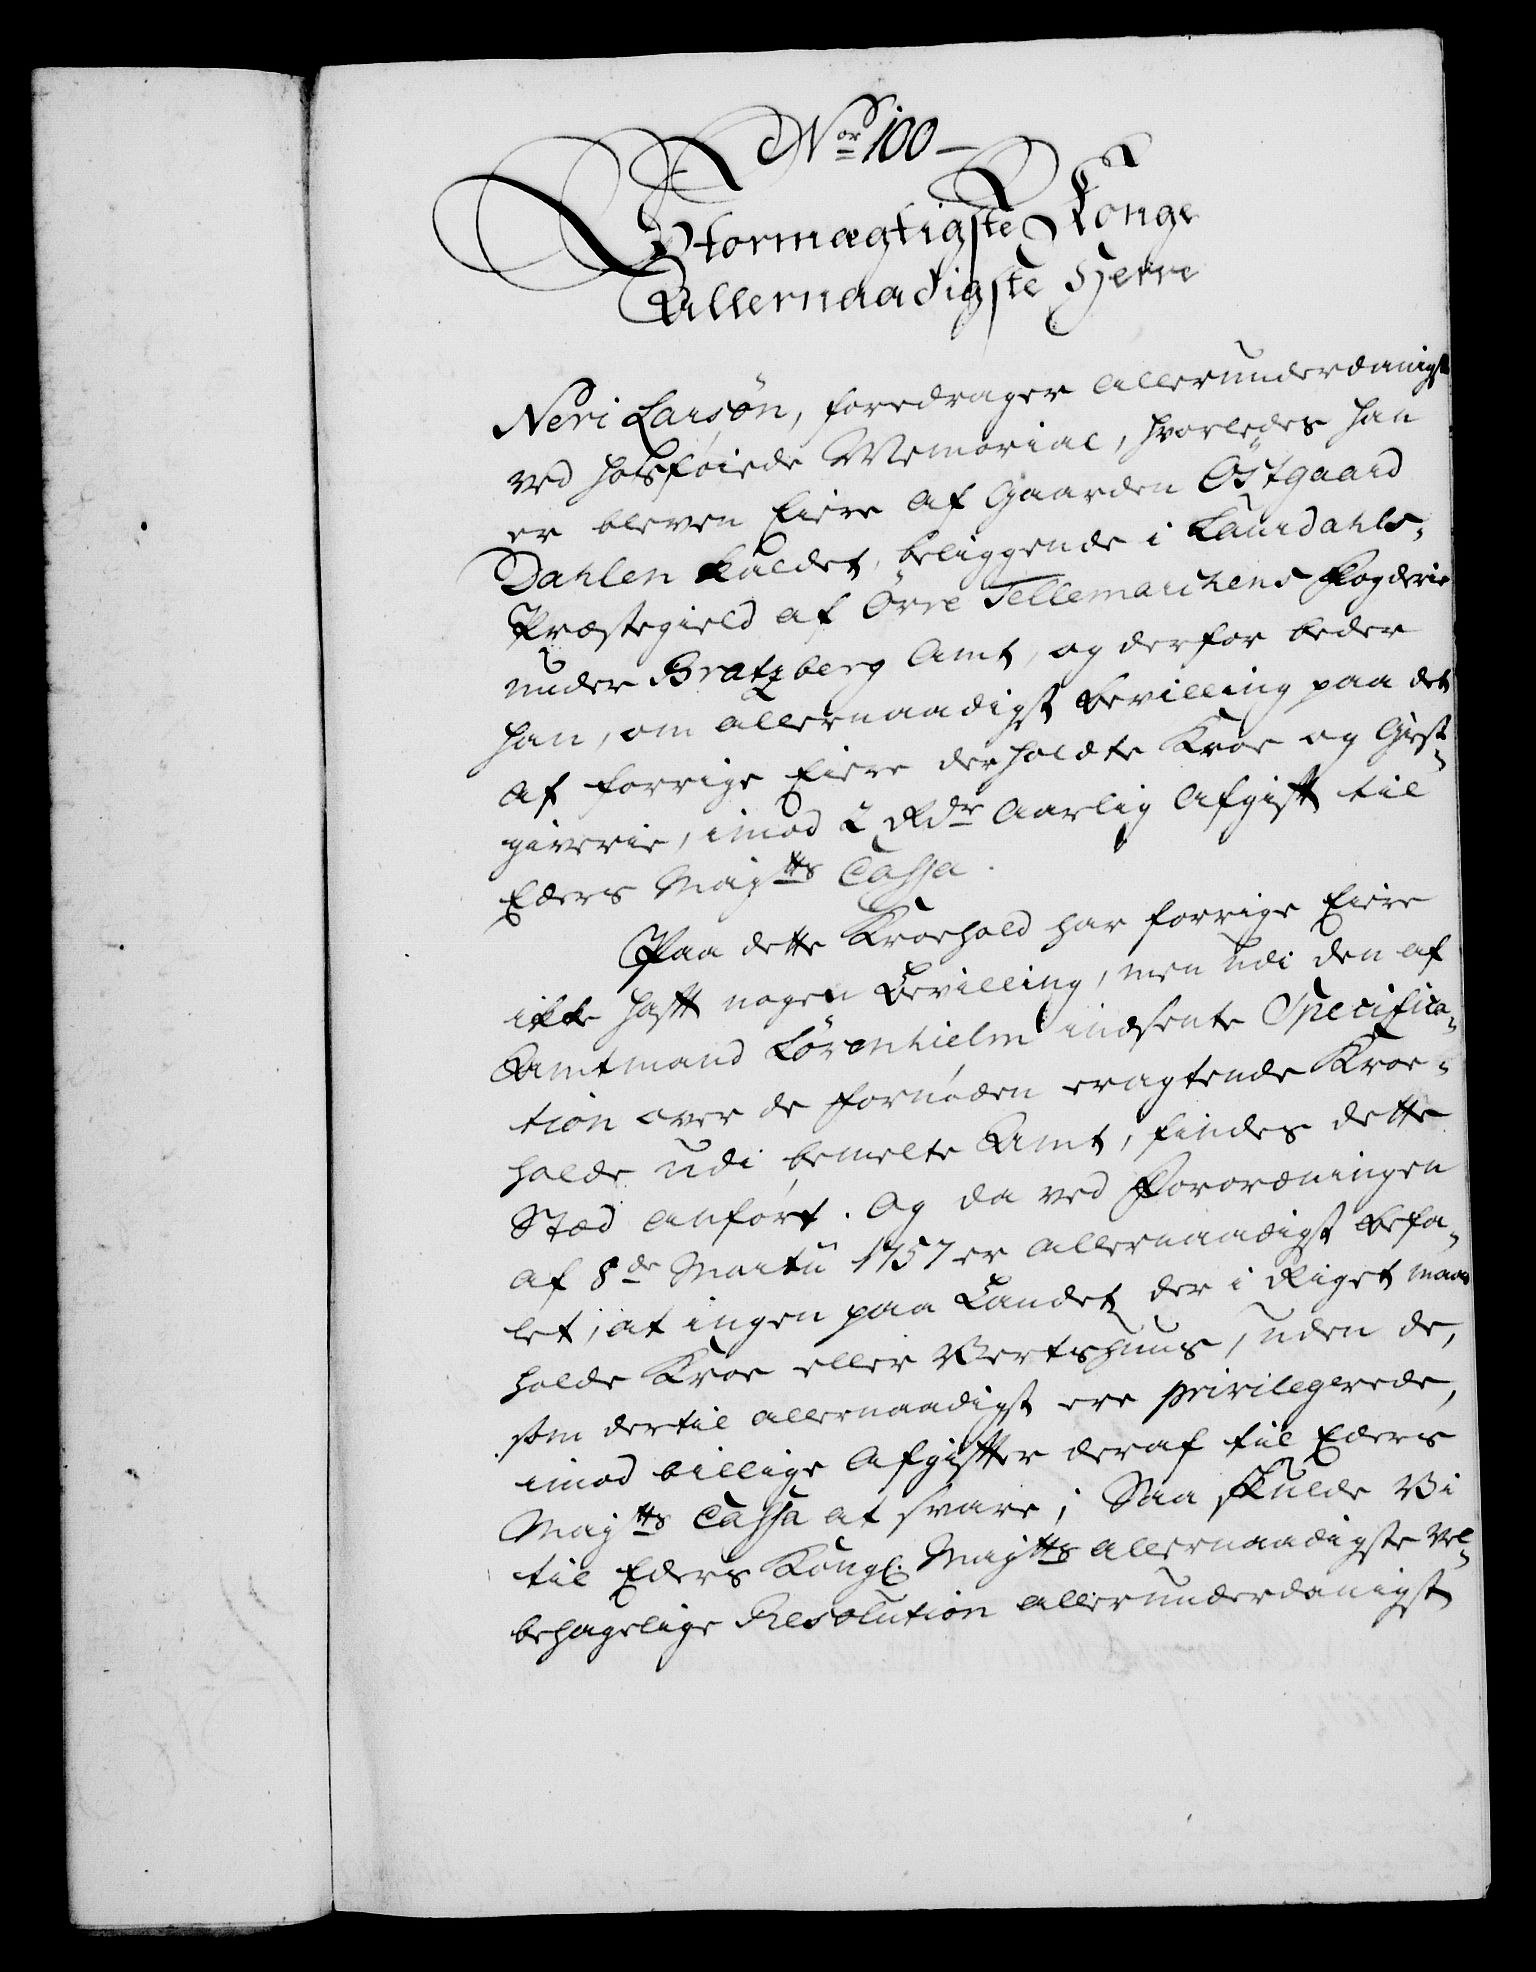 No̲r̲ 100 –
Stormægtigste Konge
Allernaadigste Herre
Neri Larsøn, foredrager allerunderdanigst
ved hosføiede Memorial, hvorledes han
er bleven Eiere af Gaarden Östgaard
Dahlen kaldet, beliggende i Laurdahls-
Præstegield af Övre Tellemarchens Fogderie
under Bratzberg Amt, og derfor beder
han, om allernaadigst Bevilling paa det
af forrige Eiere derholdte Kroe og Giest-
giverie, imod 2 Rdr aarlig Afgift til
Eders Maytts Cassa.
Paa dette Kroehold har forrige Eiere
ikke haft nogen Bevilling, men udi den af
Amtmand Lövenhielm indsente Specifica-
tion over de fornöden eragtende Kroe-
holde udi bemelte Amt, findes dette
Stæd anfört. Og da ved Forordningen
af 8de Martii 1757 er allernaadigst befa-
let, at ingen paa Landet der i Riget maae
holde Kroe eller Vertshuus, uden de,
som dertil allernaadigst ere privilegerede,
imod billige Afgifter deraf til Eders
Maytts Cassa at svare; Saa skulde Vi
til Eders Kongl. Maytts allernaadigste Vel-
behagelige Resolution allerunderdanigst